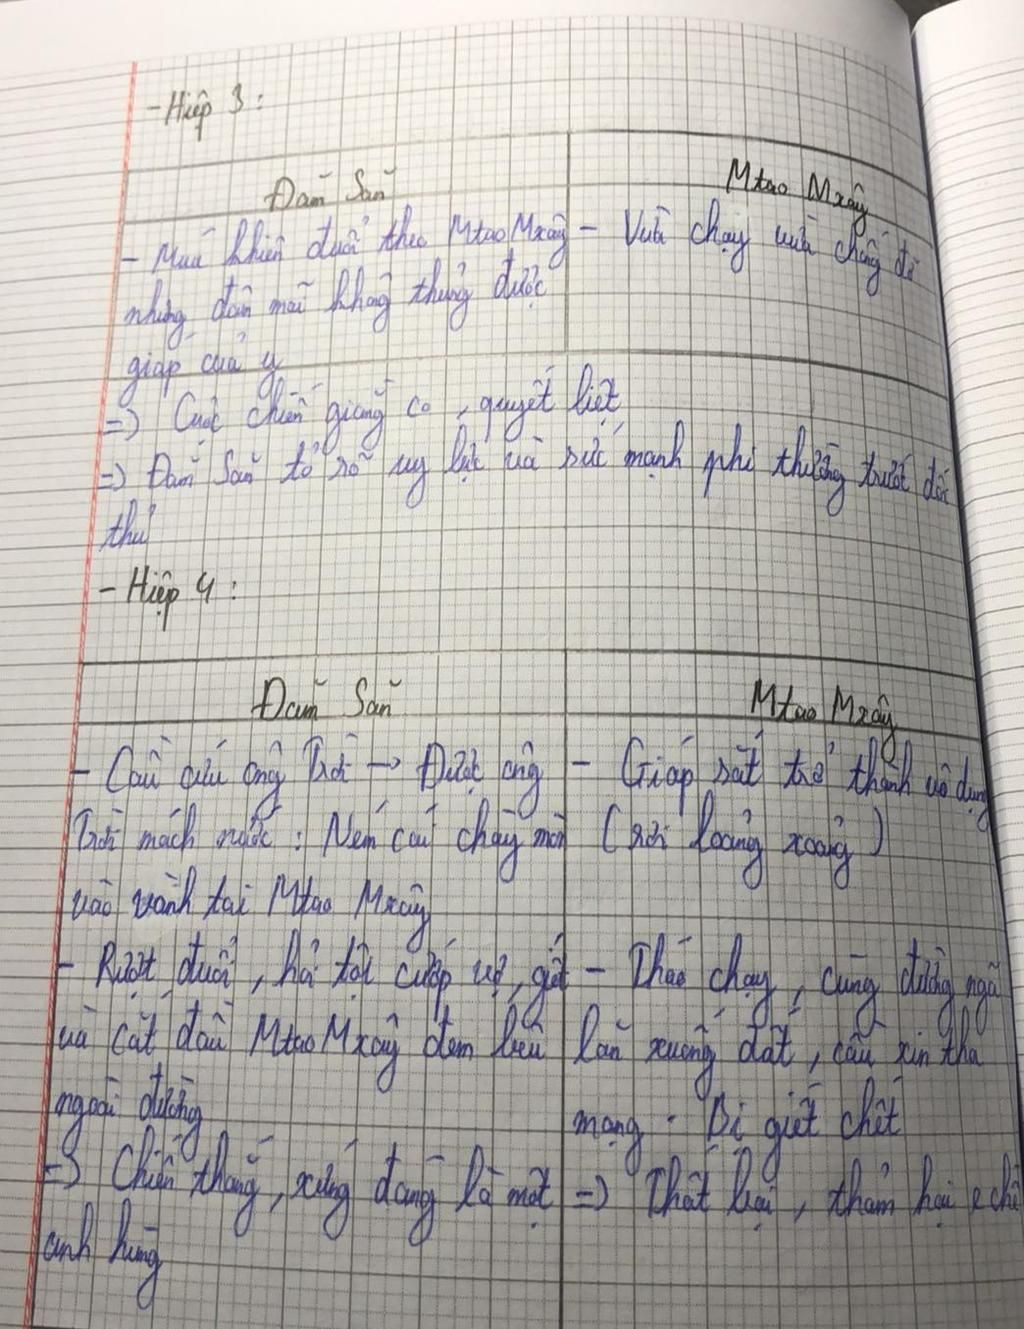 - Hiệp 3 :
Đăm Săn
Mtao Mxây
- Múa khiên đuổi theo Mtao Mxây
- Vừa chạy vừa chống đỡ
nhưng đâm mãi không thủng được
giáp của y
=> Cuộc chiến giằng co, quyết liệt
=> Đăm Săn tỏ rõ uy lực và sức mạnh phi thường trước đối
thủ
- Hiệp 4 :
Đăm Săn
Mtao Mxây
- Cầu cứu ông Trời -> Được ông
Trời mách nước : Ném cái chày mòn
vào vành tai Mtao Mxây
- Giáp sắt trở thành vô dụng
(rơi loảng xoảng)
- Rượt đuổi, hỏi tội cướp vợ, giết
và cắt đầu Mtao Mxây đem bêu
ngoài đường
- Tháo chạy, cùng đường ngã
lăn xuống đất, cầu xin tha
mạng - Bị giết chết
=> Chiến thắng, xứng đáng là một
anh hùng
=> Thất bại, thảm hại ê chề